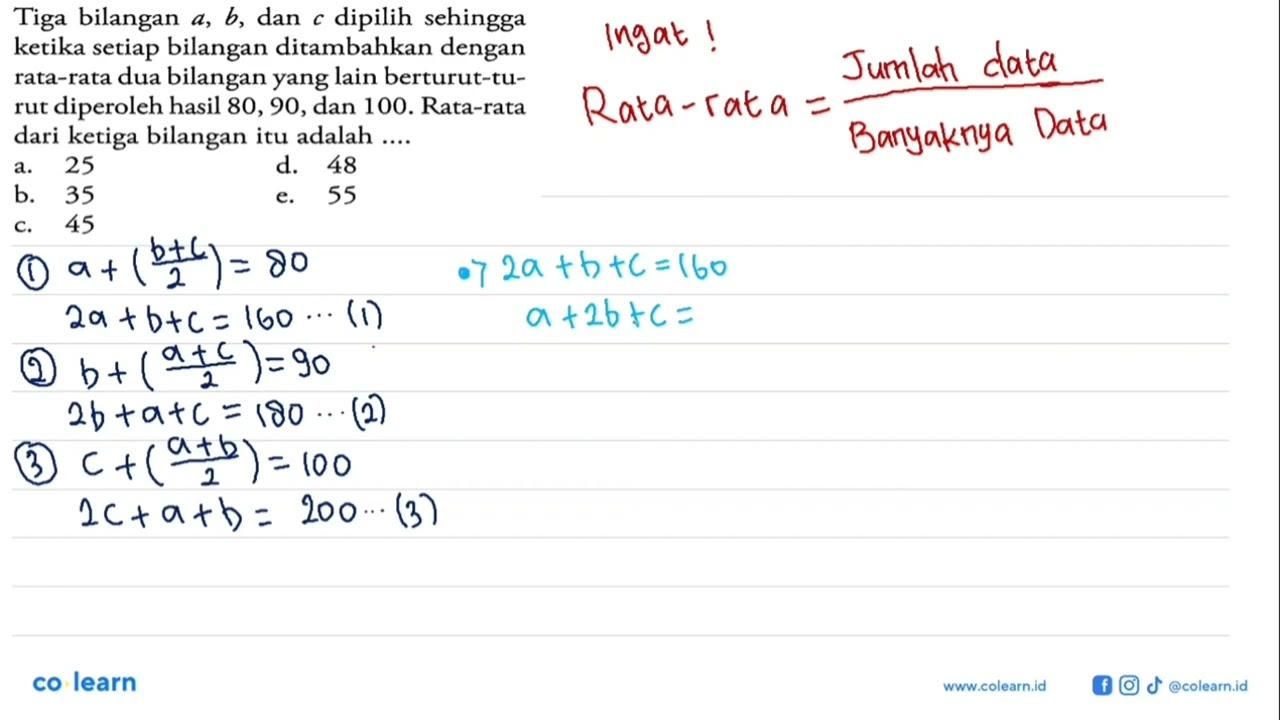 Tiga bilangan a, b, dan c dipilih sehingga
ketika setiap bilangan ditambahkan dengan
rata-rata dua bilangan yang lain berturut-tu-
rut diperoleh hasil 80, 90, dan 100. Rata-rata
dari ketiga bilangan itu adalah ....
a. 25 d. 48
b. 35 e. 55
c. 45
Ingat !
Rata-rata = Jumlah data / Banyaknya Data
① a + (b+c / 2) = 80
2a + b + c = 160 ... (1)
② b + (a+c / 2) = 90
2b + a + c = 180 ... (2)
③ c + (a+b / 2) = 100
2c + a + b = 200 ... (3)
•7 2a + b + c = 160
a + 2b + c =
co learn
www.colearn.id @colearn.id